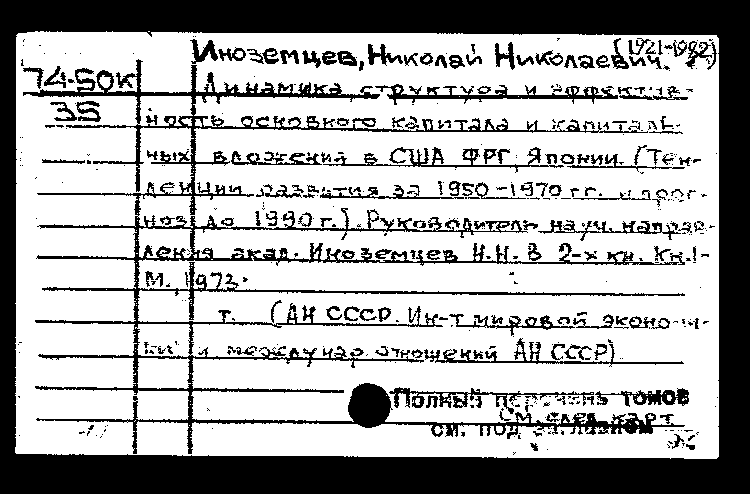 (1921-1982)
Иноземцев, Николай Николаевич.
74-50К
Динамика, структура и эффектив-
35
ность основного капитала и капиталь-
ных вложений в США, ФРГ, Японии. (Тен-
денции развития за 1950-1970 гг. и прог-
ноз до 1990 г.). Руководитель науч. направ-
ления акад. Иноземцев Н.Н. В 2-х кн. Кн.1-
М., 1973.
т. (АН СССР. Ин-т мировой экономи-
ки и междунар отношений АН СССР)
Полный перечень томов
см. след. карт
см. под заглавием